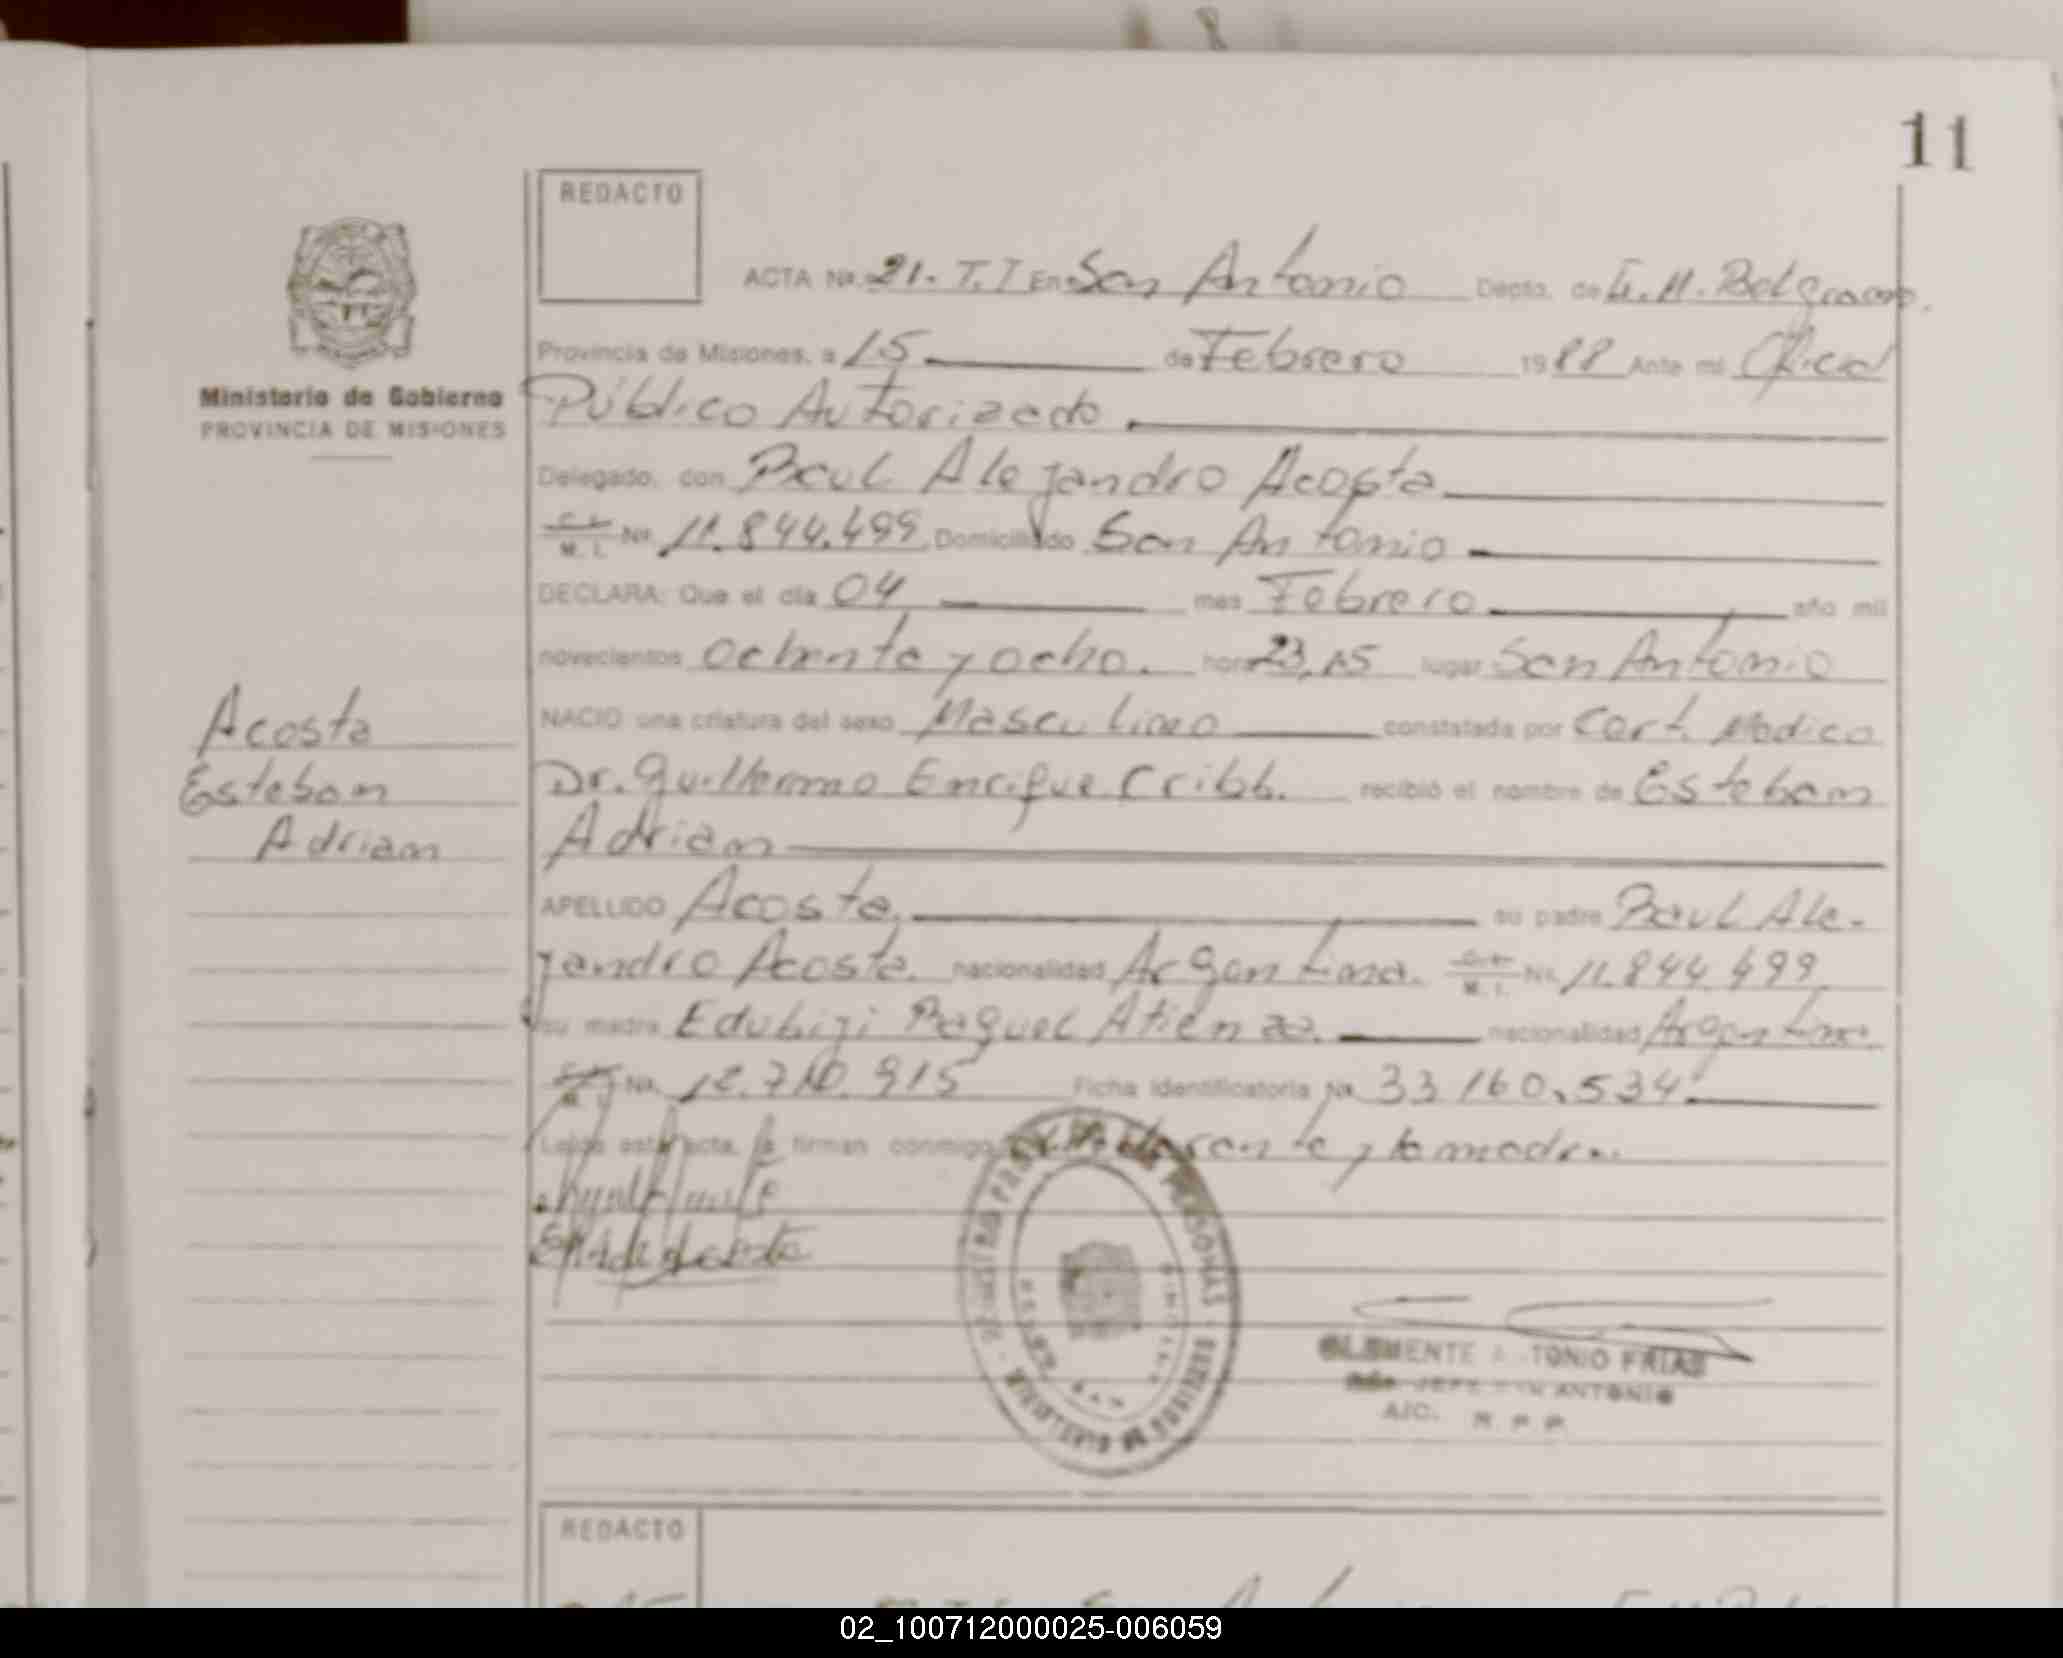 11
REDACTO
ACTA No. 21. T. I En San Antonio Depto. de G. M. Belgrano.
Ministerio de Gobierno
PROVINCIA DE MISIONES
Provincia de Misiones, a 15 de Febrero 1988 Ante mi Oficial
Público Autorizado
Delegado, con Raul Alejandro Acosta
M. I. No. 11.844.499 Domiciliado San Antonio
DECLARA: Que el día 04 mes Febrero año mil
novecientos ochenta y ocho. hora 23,15 lugar San Antonio
Acosta
Esteban
Adrian
NACIO una criatura del sexo Masculino constatada por Cert. Medico
Dr. Guillermo Enrique Cribb. recibió el nombre de Esteban
Adrian
APELLIDO Acosta. su padre Raul Ale-
jandro Acosta. nacionalidad Argentina. M. I. No. 11.844.499
su madre Eduhigi Raquel Atienza. nacionalidad Argentina.
No. 12.710.915 Ficha Identificatoria No. 33 160.534
Leída esta acta, la firman conmigo y la madre.
REGISTRO PROV. DE LAS PERSONAS
MINISTERIO DE GOBIERNO
MISIONES
CLEMENTE ANTONIO FRIAS
JEFE SAN ANTONIO
A/C. R. P. P.
REDACTO
02_100712000025-006059